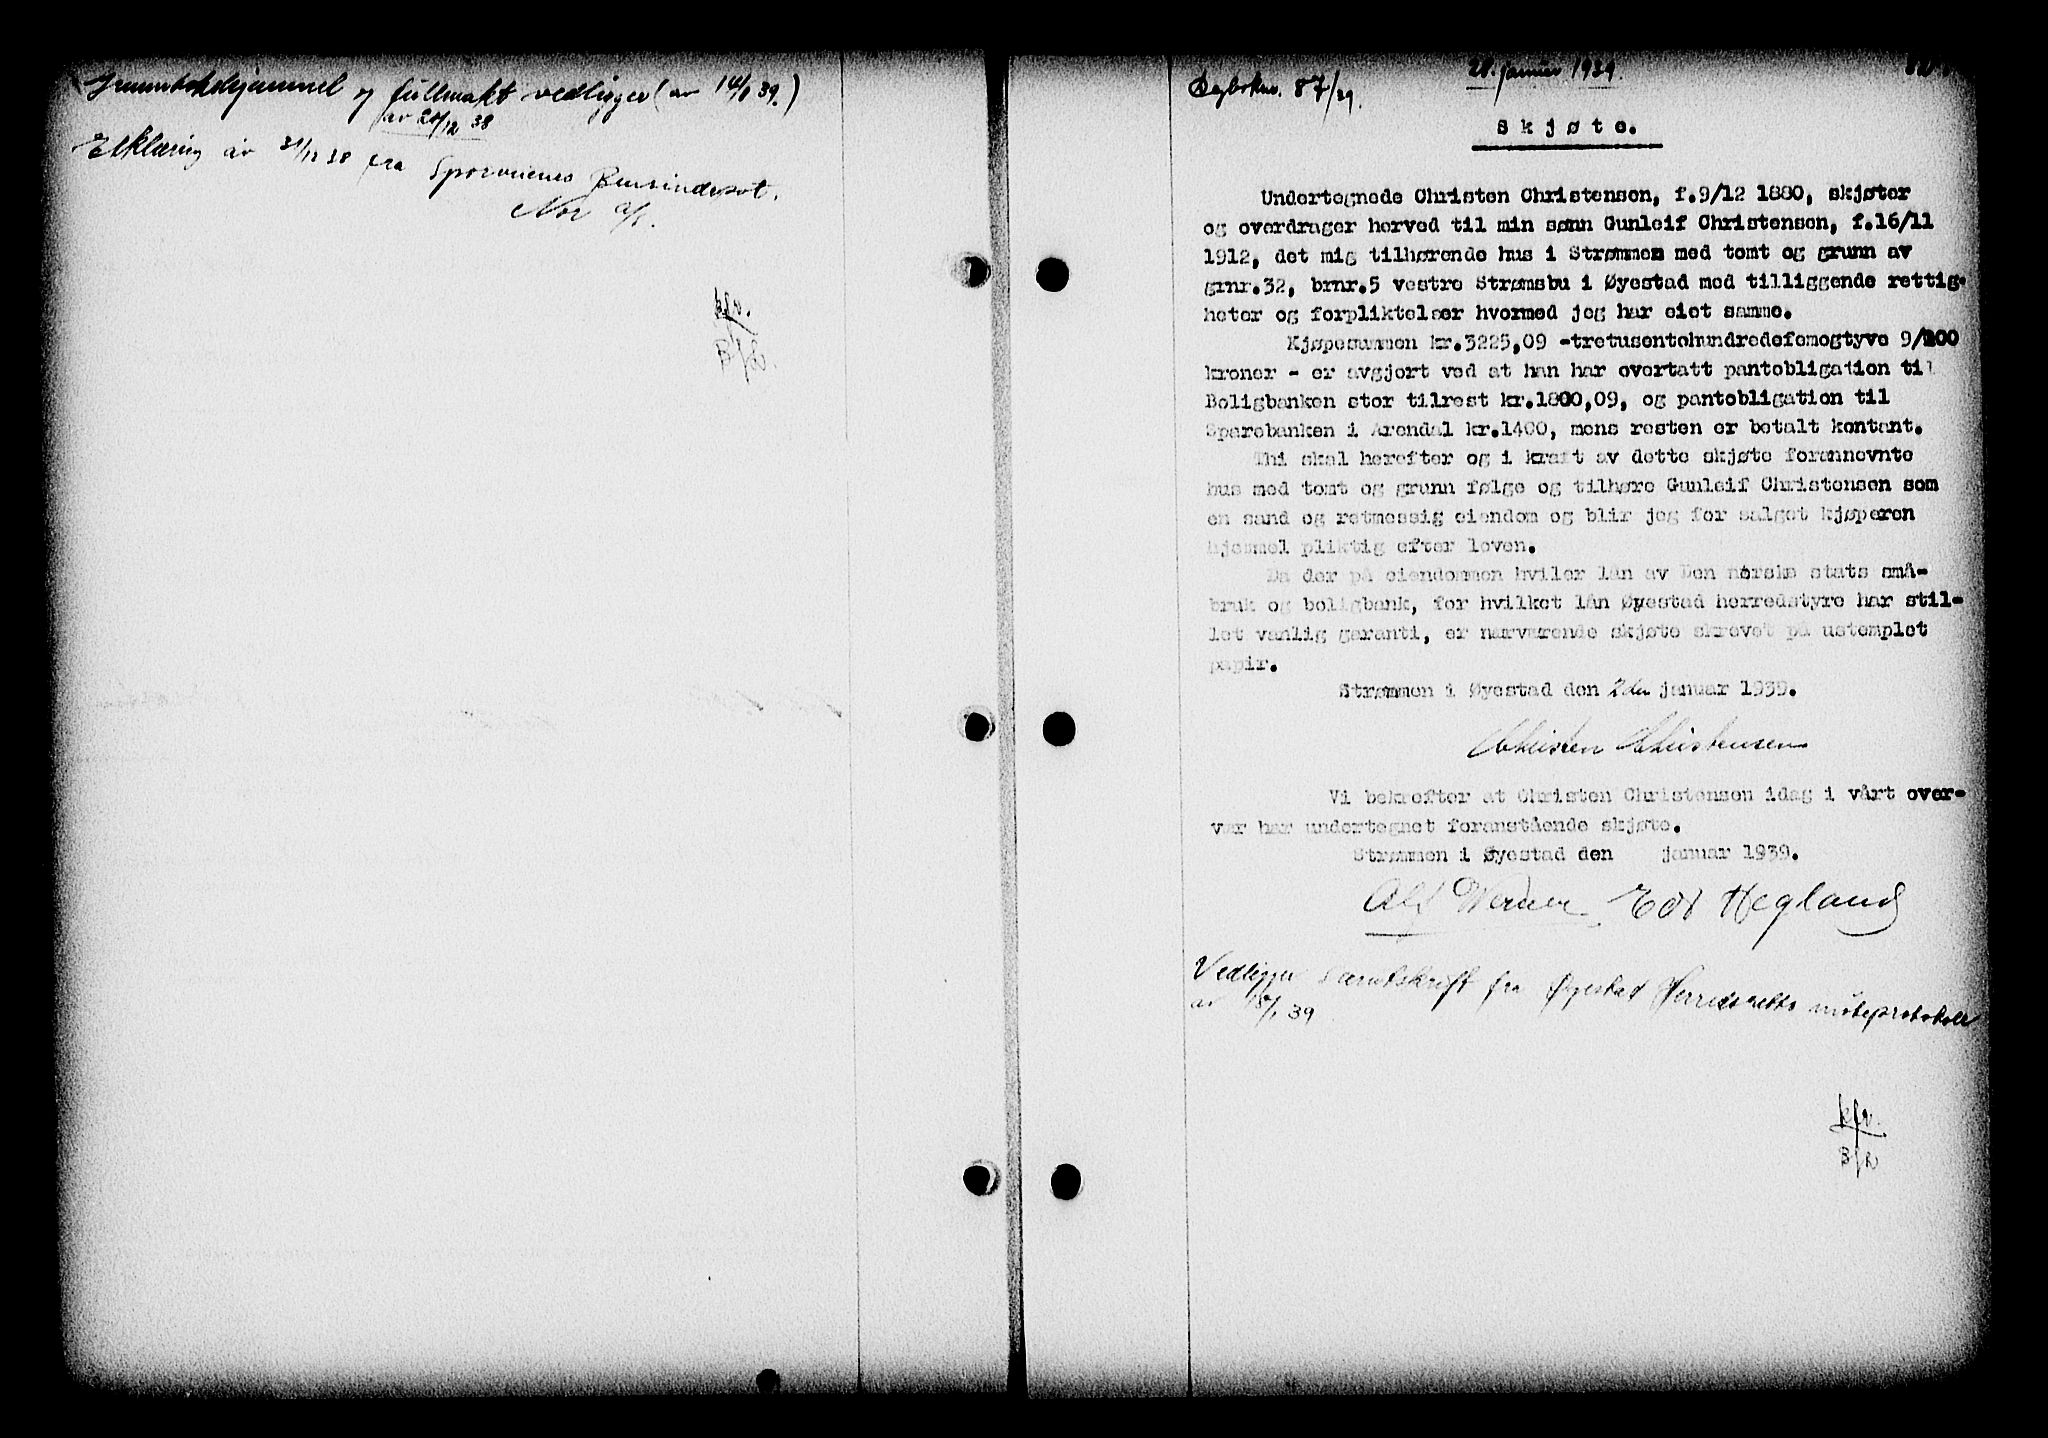 Grunnbokshjemmel og fullmakt vedligger (av 14/1 39.)
av 20/12 38
Erklæring av 31/12 38 fra Sporveienes Bensindepot.
Nor a/s.
kfr.
B/L.
Dagboknr. 87/39.
28. januar 1939.
Skjøte.
Undertegnede Christen Christensen, f.9/12 1880, skjøter
og overdrager herved til min sønn Gunleif Christensen, f.16/11
1912, det mig tilhørende hus i Strømmen med tomt og grunn av
grnr.32, brnr.5 vestre Strømsbu i Øyestad med tilliggende rettig-
heter og forpliktelser hvormed jeg har eiet samme.
Kjøpesummen kr.3225,09 -tretusentohundredefemogtyve 9/100
kroner - er avgjort ved at han har overtatt pantobligation til
Boligbanken stor tilrest kr.1800,09, og pantobligation til
Sparebanken i Arendal kr.1400, mens resten er betalt kontant.
Thi skal herefter og i kraft av dette skjøte forannevnte
hus med tomt og grunn følge og tilhøre Gunleif Christensen som
en sand og retmessig eiendom og blir jeg for salget kjøperen
hjemmel pliktig efter loven.
Da der på eiendommen hviler lån av Den norske stats små-
bruk og boligbank, for hvilket lån Øyestad herredstyre har stil-
let vanlig garanti, er nærværende skjøte skrevet på ustemplet
papir.
Strømmen i Øyestad den 2den januar 1939.
Christen Christensen
Vi bekrefter at Christen Christensen idag i vårt over-
vær har undertegnet foranstående skjøte.
Strømmen i Øyestad den januar 1939.
Alf Werner Edv Hegland
Vedligger særutskrift fra Øyestad Herredsretts møteprotokoll
av 18/1 39
kfr.
B/L